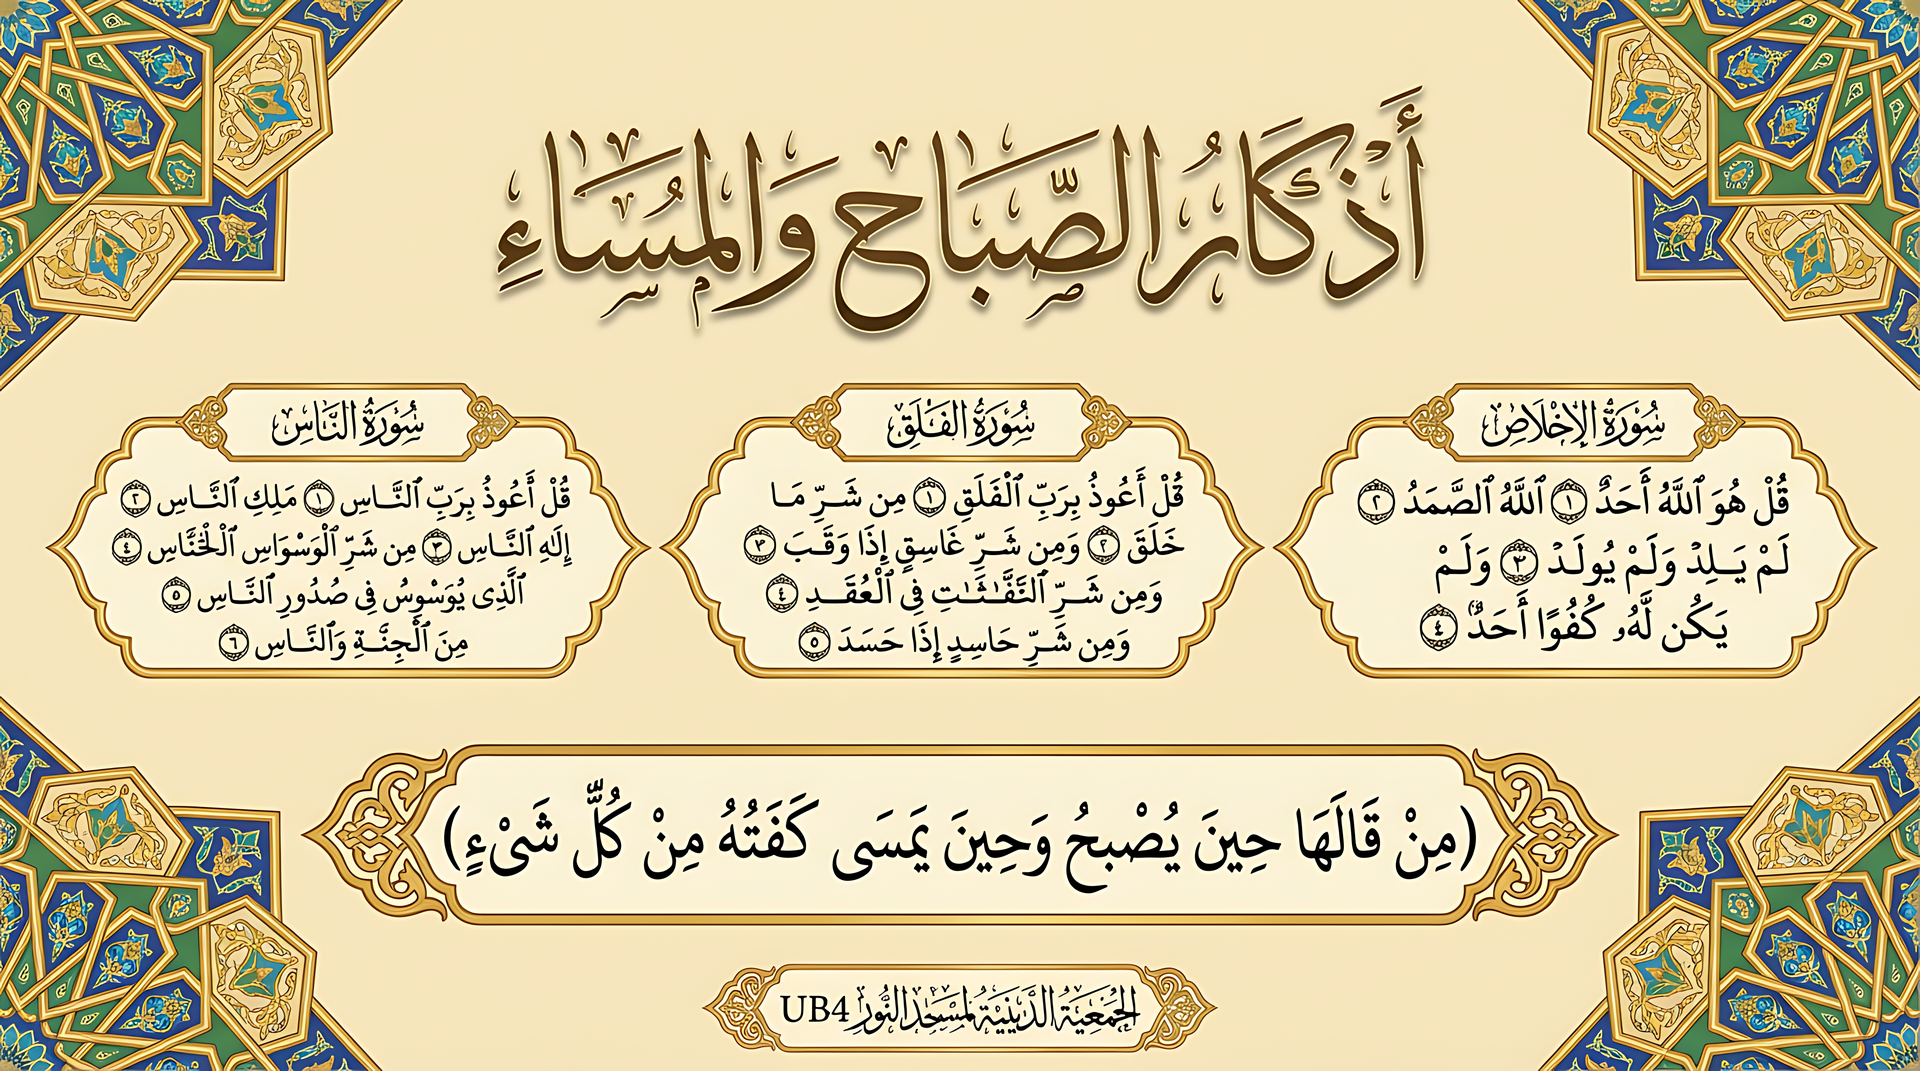 أَذْكَارُ الصَّبَاحِ وَالْمَسَاءِ
سُورَةُ الإِخْلَاصِ
قُلْ هُوَ ٱللَّهُ أَحَدٌ ١ ٱللَّهُ ٱلصَّمَدُ ٢
لَمْ يَلِدْ وَلَمْ يُولَدْ ٣ وَلَمْ
يَكُن لَّهُۥ كُفُوًا أَحَدٌ ٤
سُورَةُ الفَلَقِ
قُلْ أَعُوذُ بِرَبِّ ٱلْفَلَقِ ١ مِن شَرِّ مَا
خَلَقَ ٢ وَمِن شَرِّ غَاسِقٍ إِذَا وَقَبَ ٣
وَمِن شَرِّ ٱلنَّفَّٰثَٰتِ فِى ٱلْعُقَدِ ٤
وَمِن شَرِّ حَاسِدٍ إِذَا حَسَدَ ٥
سُورَةُ النَّاسِ
قُلْ أَعُوذُ بِرَبِّ ٱلنَّاسِ ١ مَلِكِ ٱلنَّاسِ ٢
إِلَٰهِ ٱلنَّاسِ ٣ مِن شَرِّ ٱلْوَسْوَاسِ ٱلْخَنَّاسِ ٤
ٱلَّذِى يُوَسْوِسُ فِى صُدُورِ ٱلنَّاسِ ٥
مِنَ ٱلْجِنَّةِ وَٱلنَّاسِ ٦
(مِنْ قَالَهَا حِينَ يُصْبحُ وَحِينَ يَمسَى كَفَتُهُ مِنْ كُلِّ شَىْءٍ)
الجَمْعِيَّة الدِّينِيَّة لمَسْجِد النُّور UB4